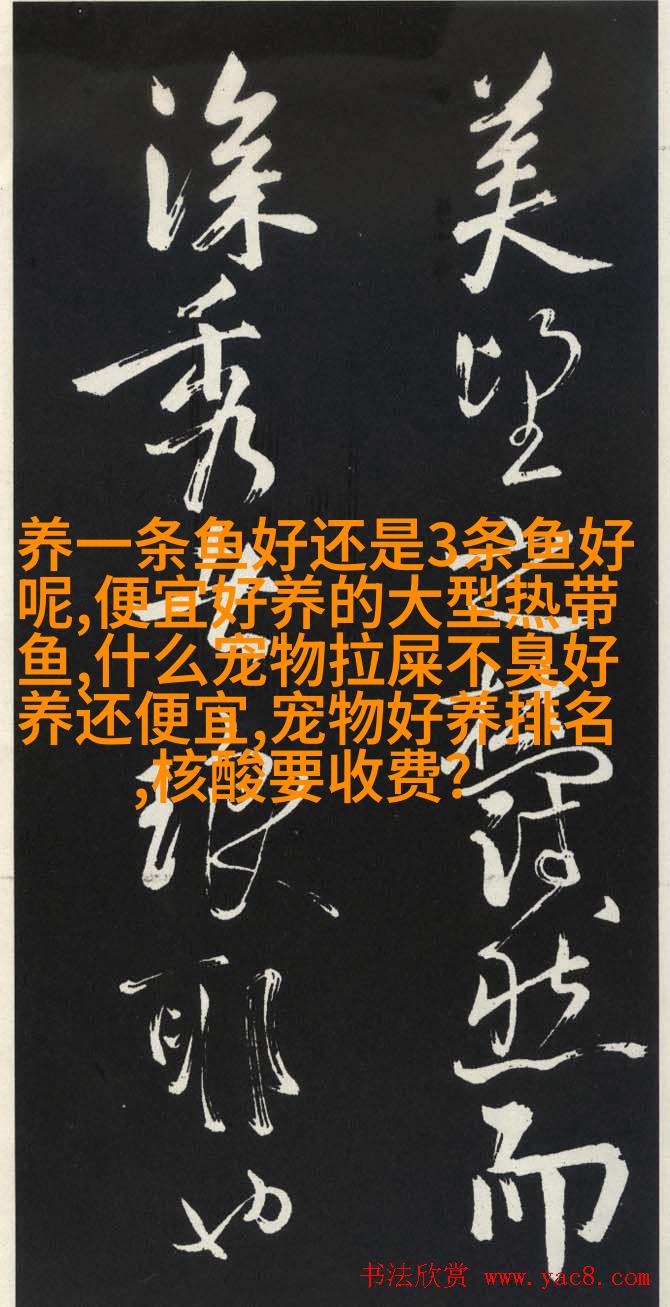 美望之蔚然而
深秀者琅耶也
养一条鱼好还是3条鱼好
呢,便宜好养的大型热带
鱼,什么宠物拉屎不臭好
养还便宜,宠物好养排名
,核酸要收费?
书法欣赏 www.yac8.com